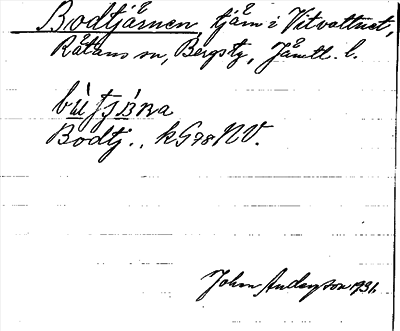 Bodtjärnen, tjärn i Vitvattnet,
Råtans sn, Bergs tg, Jämtl. l.
Bodtj., kG78NV.
John Anderzson 1931.